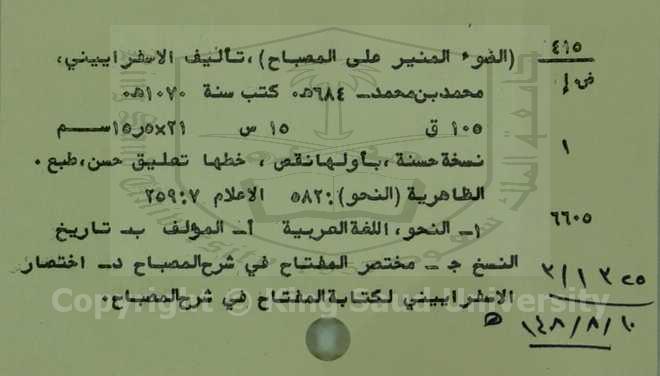 ٤١٥
ض ا
(الضوء المنير على المصباح)، تأليف الاسفراييني،
محمد بن محمد ــ ٦٨٤هـ. كتب سنة ١٠٧٠هـ.
١٠٥ ق ١٥ س ٢١×١٥٫٥ سم
١
نسخة حسنة، بأولها نقص، خطها تعليق حسن، طبع.
الظاهرية (النحو): ٥٨٢ الاعلام ٧: ٢٥٩
٦٦٠٥
١ــ النحو، اللغة العربية أــ المؤلف بــ تاريخ
النسخ جــ مختصر المفتاح في شرح المصباح دــ اختصار
الاسفراييني لكتابة المفتاح في شرح المصباح.
Copyright © King Saud University